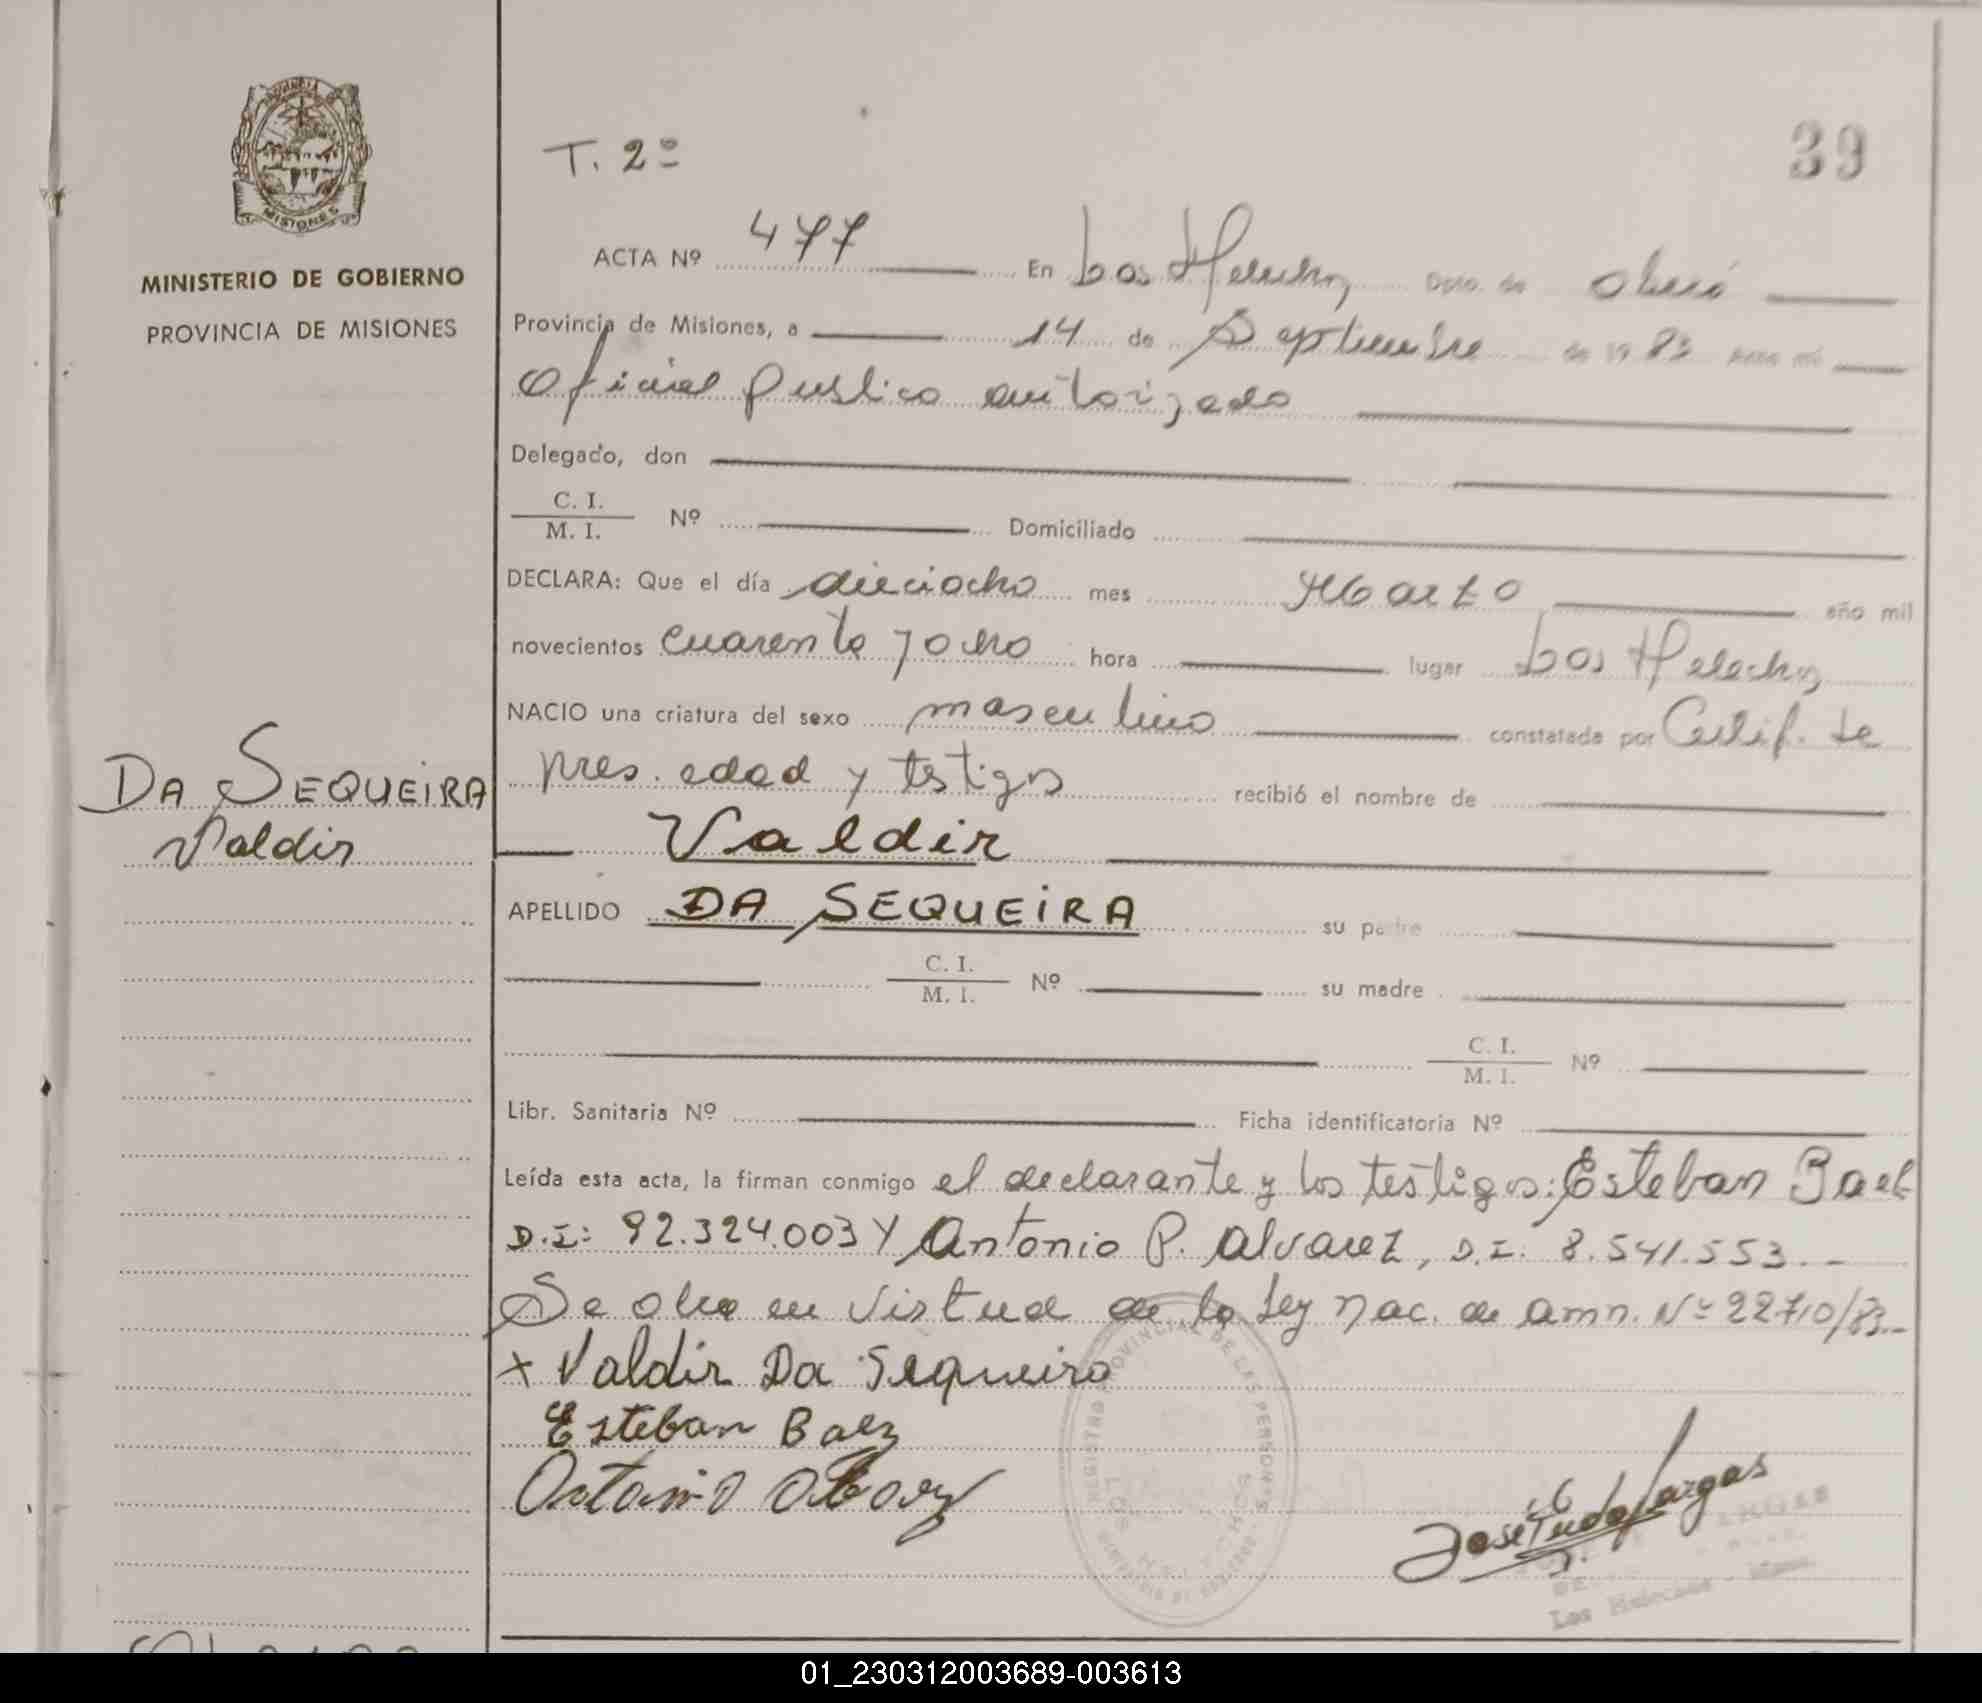 PROVINCIA DE
MISIONES
MINISTERIO DE GOBIERNO
PROVINCIA DE MISIONES
DA SEQUEIRA
Valdir
T. 2º
39
ACTA Nº 477 En Los Helechos Dpto. de Oberá
Provincia de Misiones, a 14 de Septiembre de 1983 Ante mí
Oficial Publico autorizado
Delegado, don
C. I.
M. I. Nº Domiciliado
DECLARA: Que el día dieciocho mes Marzo año mil
novecientos cuarenta y ocho hora lugar Los Helechos
NACIO una criatura del sexo masculino constatada por Certif. de
pres. edad y testigos recibió el nombre de
Valdir
APELLIDO DA SEQUEIRA su padre
C. I.
M. I. Nº su madre
C. I.
M. I. Nº
Libr. Sanitaria Nº Ficha identificatoria Nº
Leída esta acta, la firman conmigo el declarante y los testigos: Esteban Baez
D.I: 92.324.003 Y Antonio P. Alvarez, D.I. 8.541.553.-
Se labra en virtud de la Ley Nac. de amn. Nº 22710/83.-
x Valdir Da Sequeira
Esteban Baez
Antonio Alvarez
REGISTRO PROVINCIAL DE LAS PERSONAS
LOS HELECHOS
MINISTERIO DE GOBIERNO
José Tudo Vargas
Los Helechos - Mnes.
01_230312003689-003613